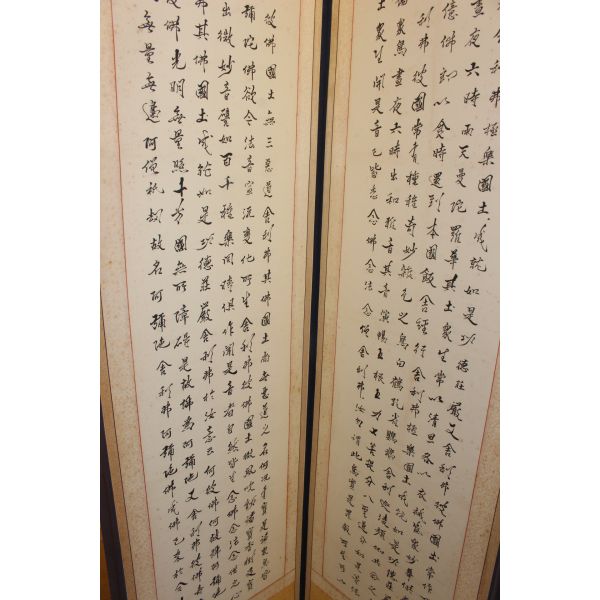 舍利弗極樂國土成就如是功德莊嚴又舍利弗彼佛國土常作
晝夜六時雨天曼陀羅華其土眾生常以清旦各以衣裓盛眾妙華供
億佛即以食時還到本國飯食經行舍利弗極樂國土成就如是功德莊
利弗彼國常有種種奇妙雜色之鳥白鶴孔雀鸚鵡舍利迦陵頻伽共命之
眾鳥晝夜六時出和雅音其音演暢五根五力七菩提分八聖道分如是等法
土眾生聞是音已皆悉念佛念法念僧舍利弗汝勿謂此鳥實是罪報所生
彼佛國土無三惡道舍利弗其佛國土尚無惡道之名何況有實是諸眾鳥皆
彌陀佛欲令法音宣流變化所作舍利弗彼佛國土微風吹動諸寶行樹及寶
出微妙音譬如百千種樂同時俱作聞是音者自然皆生念佛念法念僧之心
弗其佛國土成就如是功德莊嚴舍利弗於汝意云何彼佛何故號阿彌陀
彼佛光明無量照十方國無所障礙是故號為阿彌陀又舍利弗彼佛壽
無量無邊阿僧祇劫故名阿彌陀舍利弗阿彌陀佛成佛已來於今